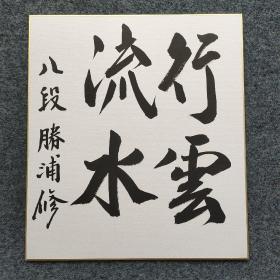 行雲
流水
八段 勝浦修